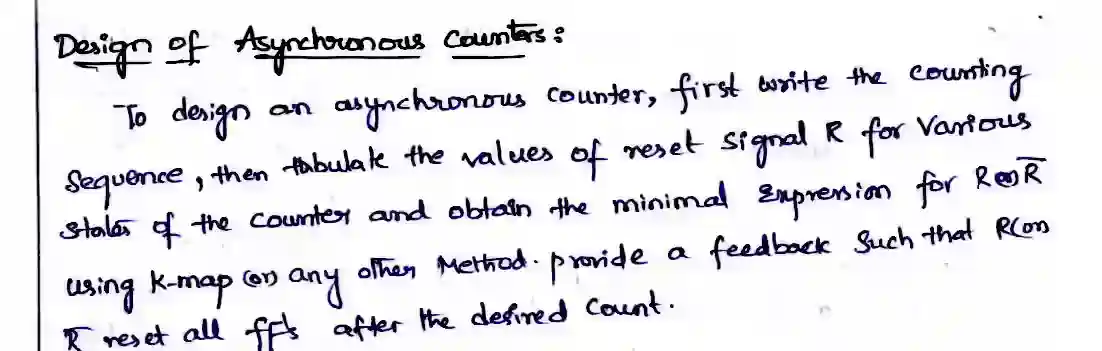 Design of Asynchronous Counters :
To design an asynchronous counter, first write the counting
Sequence, then tabulate the values of reset signal R for Various
States of the counter and obtain the minimal Expression for R (or) R̅
using K-map (or) any other Method. provide a feedback Such that R (or)
R̅ reset all ff's after the desired Count.